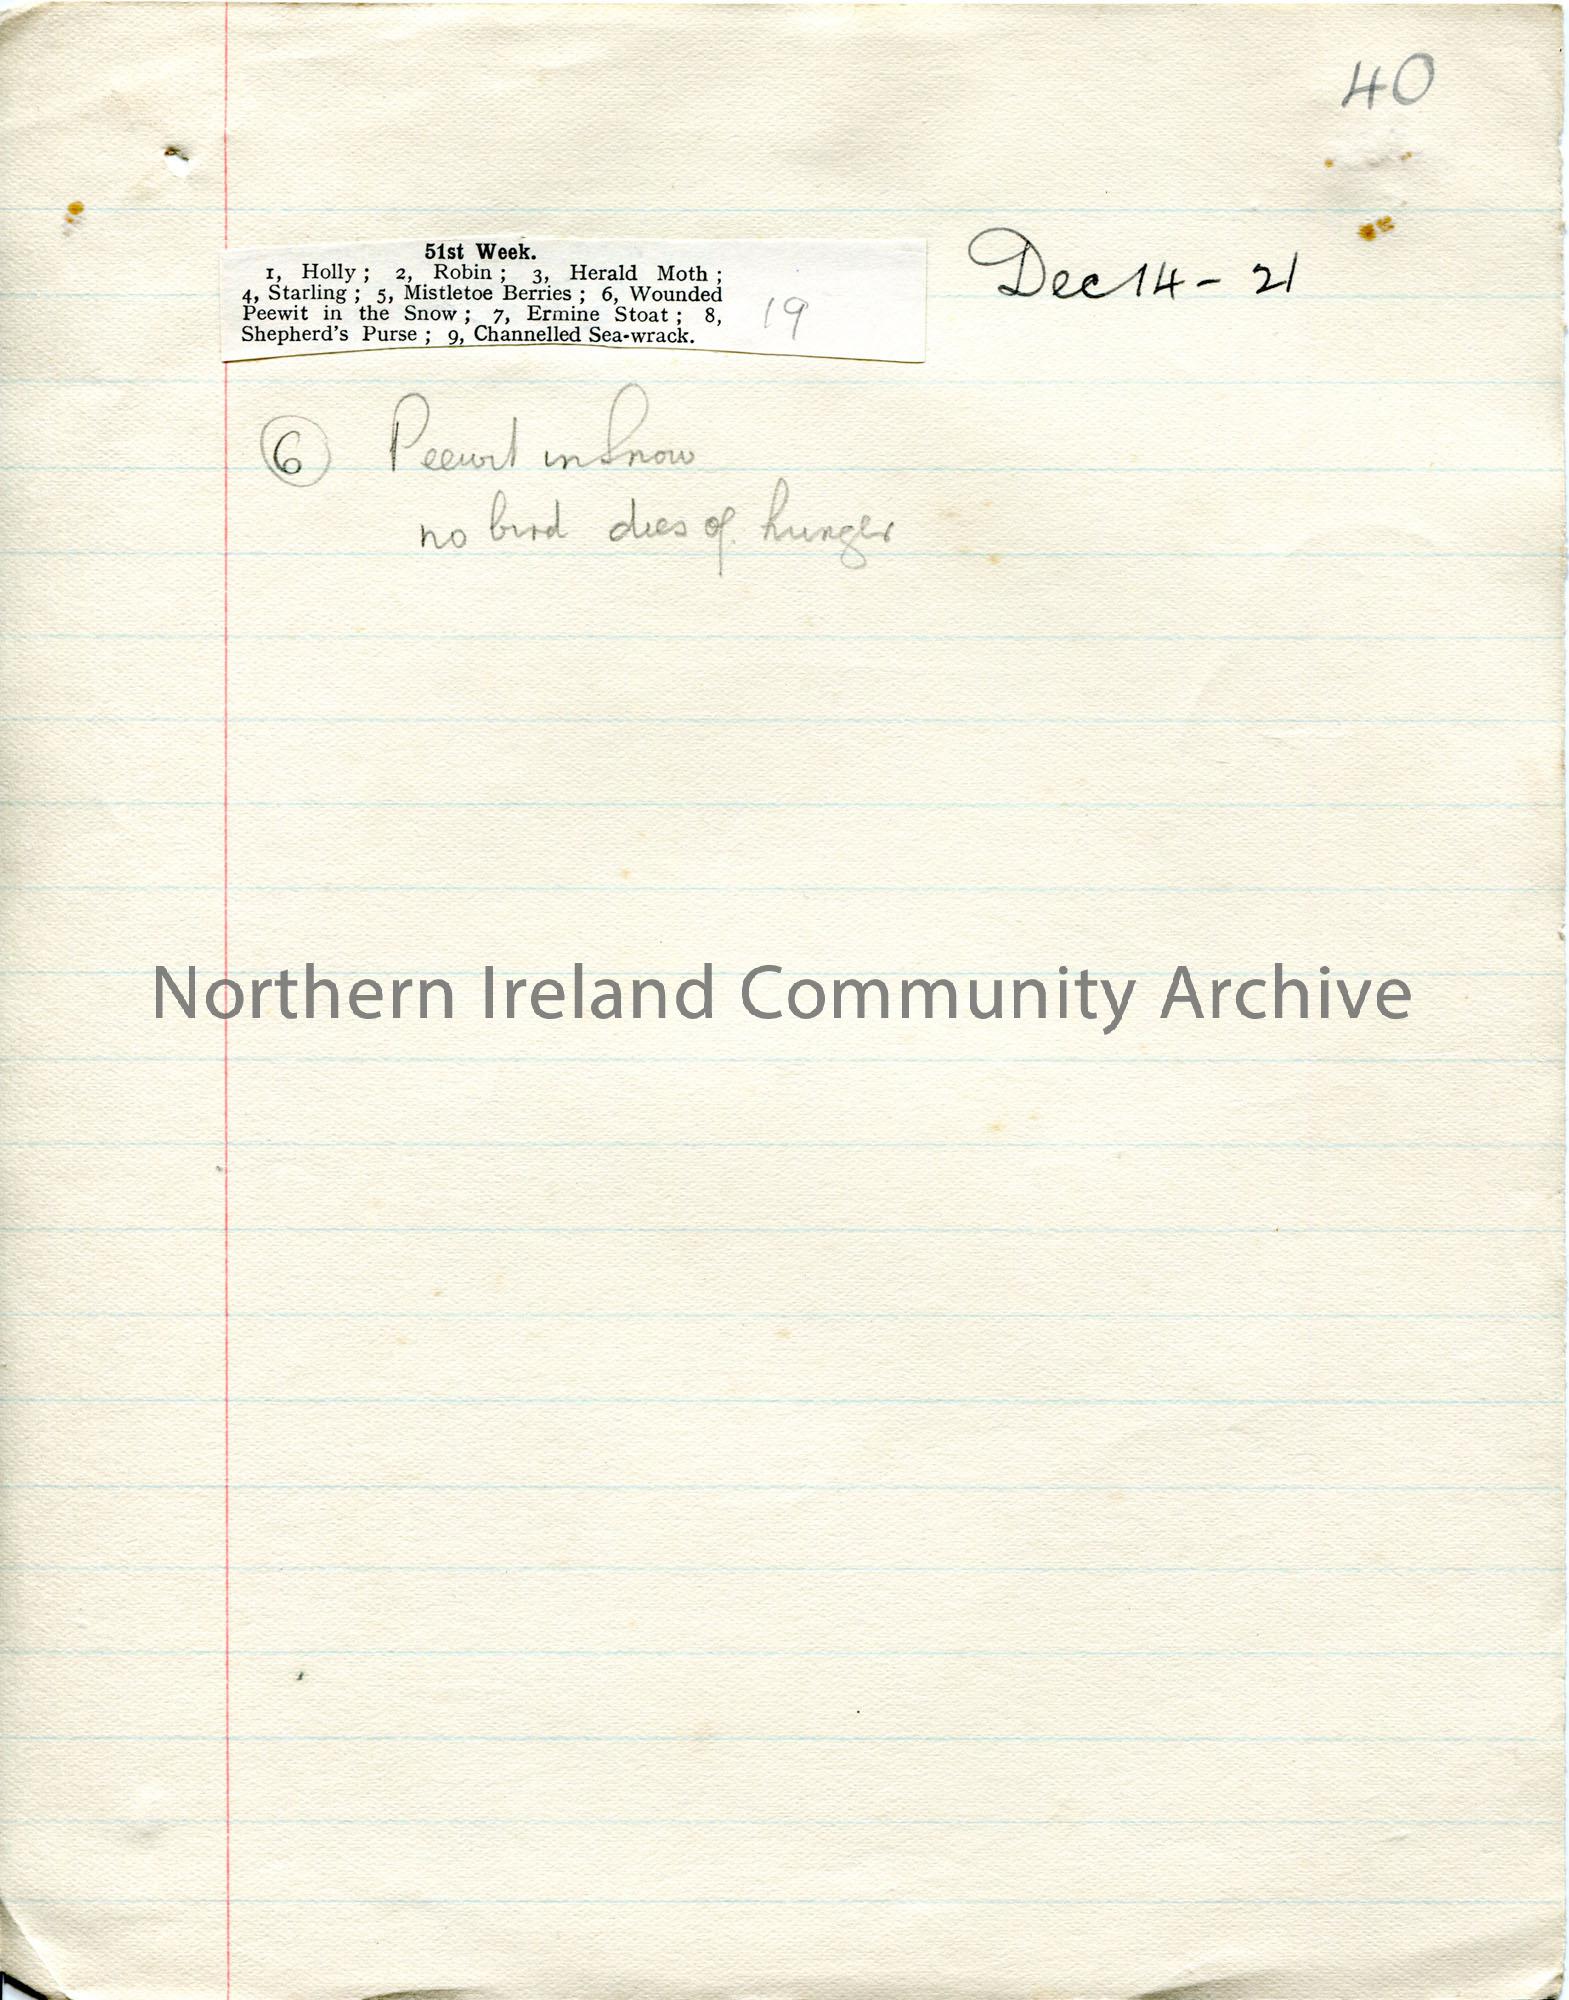 40
51st Week.
Dec 14 - 21
1, Holly ; 2, Robin ; 3, Herald Moth ;
4, Starling ; 5, Mistletoe Berries ; 6, Wounded
Peewit in the Snow ; 7, Ermine Stoat ; 8,
Shepherd's Purse ; 9, Channelled Sea-wrack.
19
6 Peewit in Snow
no bird dies of hunger
Northern Ireland Community Archive